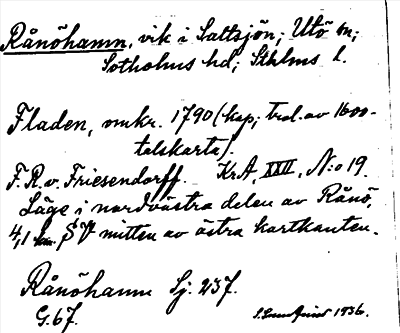 Rånöhamn, vik i Saltsjön; Utö sn;
Sotholms hd; Sthlms l.
Fladen, omkr. 1790 (kop; trol. av 1600-
talskarta).
F. R. v. Friesendorff. KrA, XXII, N:o 19.
Läge i nordvästra delen av Rånö,
4,1 km SV mitten av östra kartkanten.
Rånöhamn Sj: 237.
G. 67.
1936.